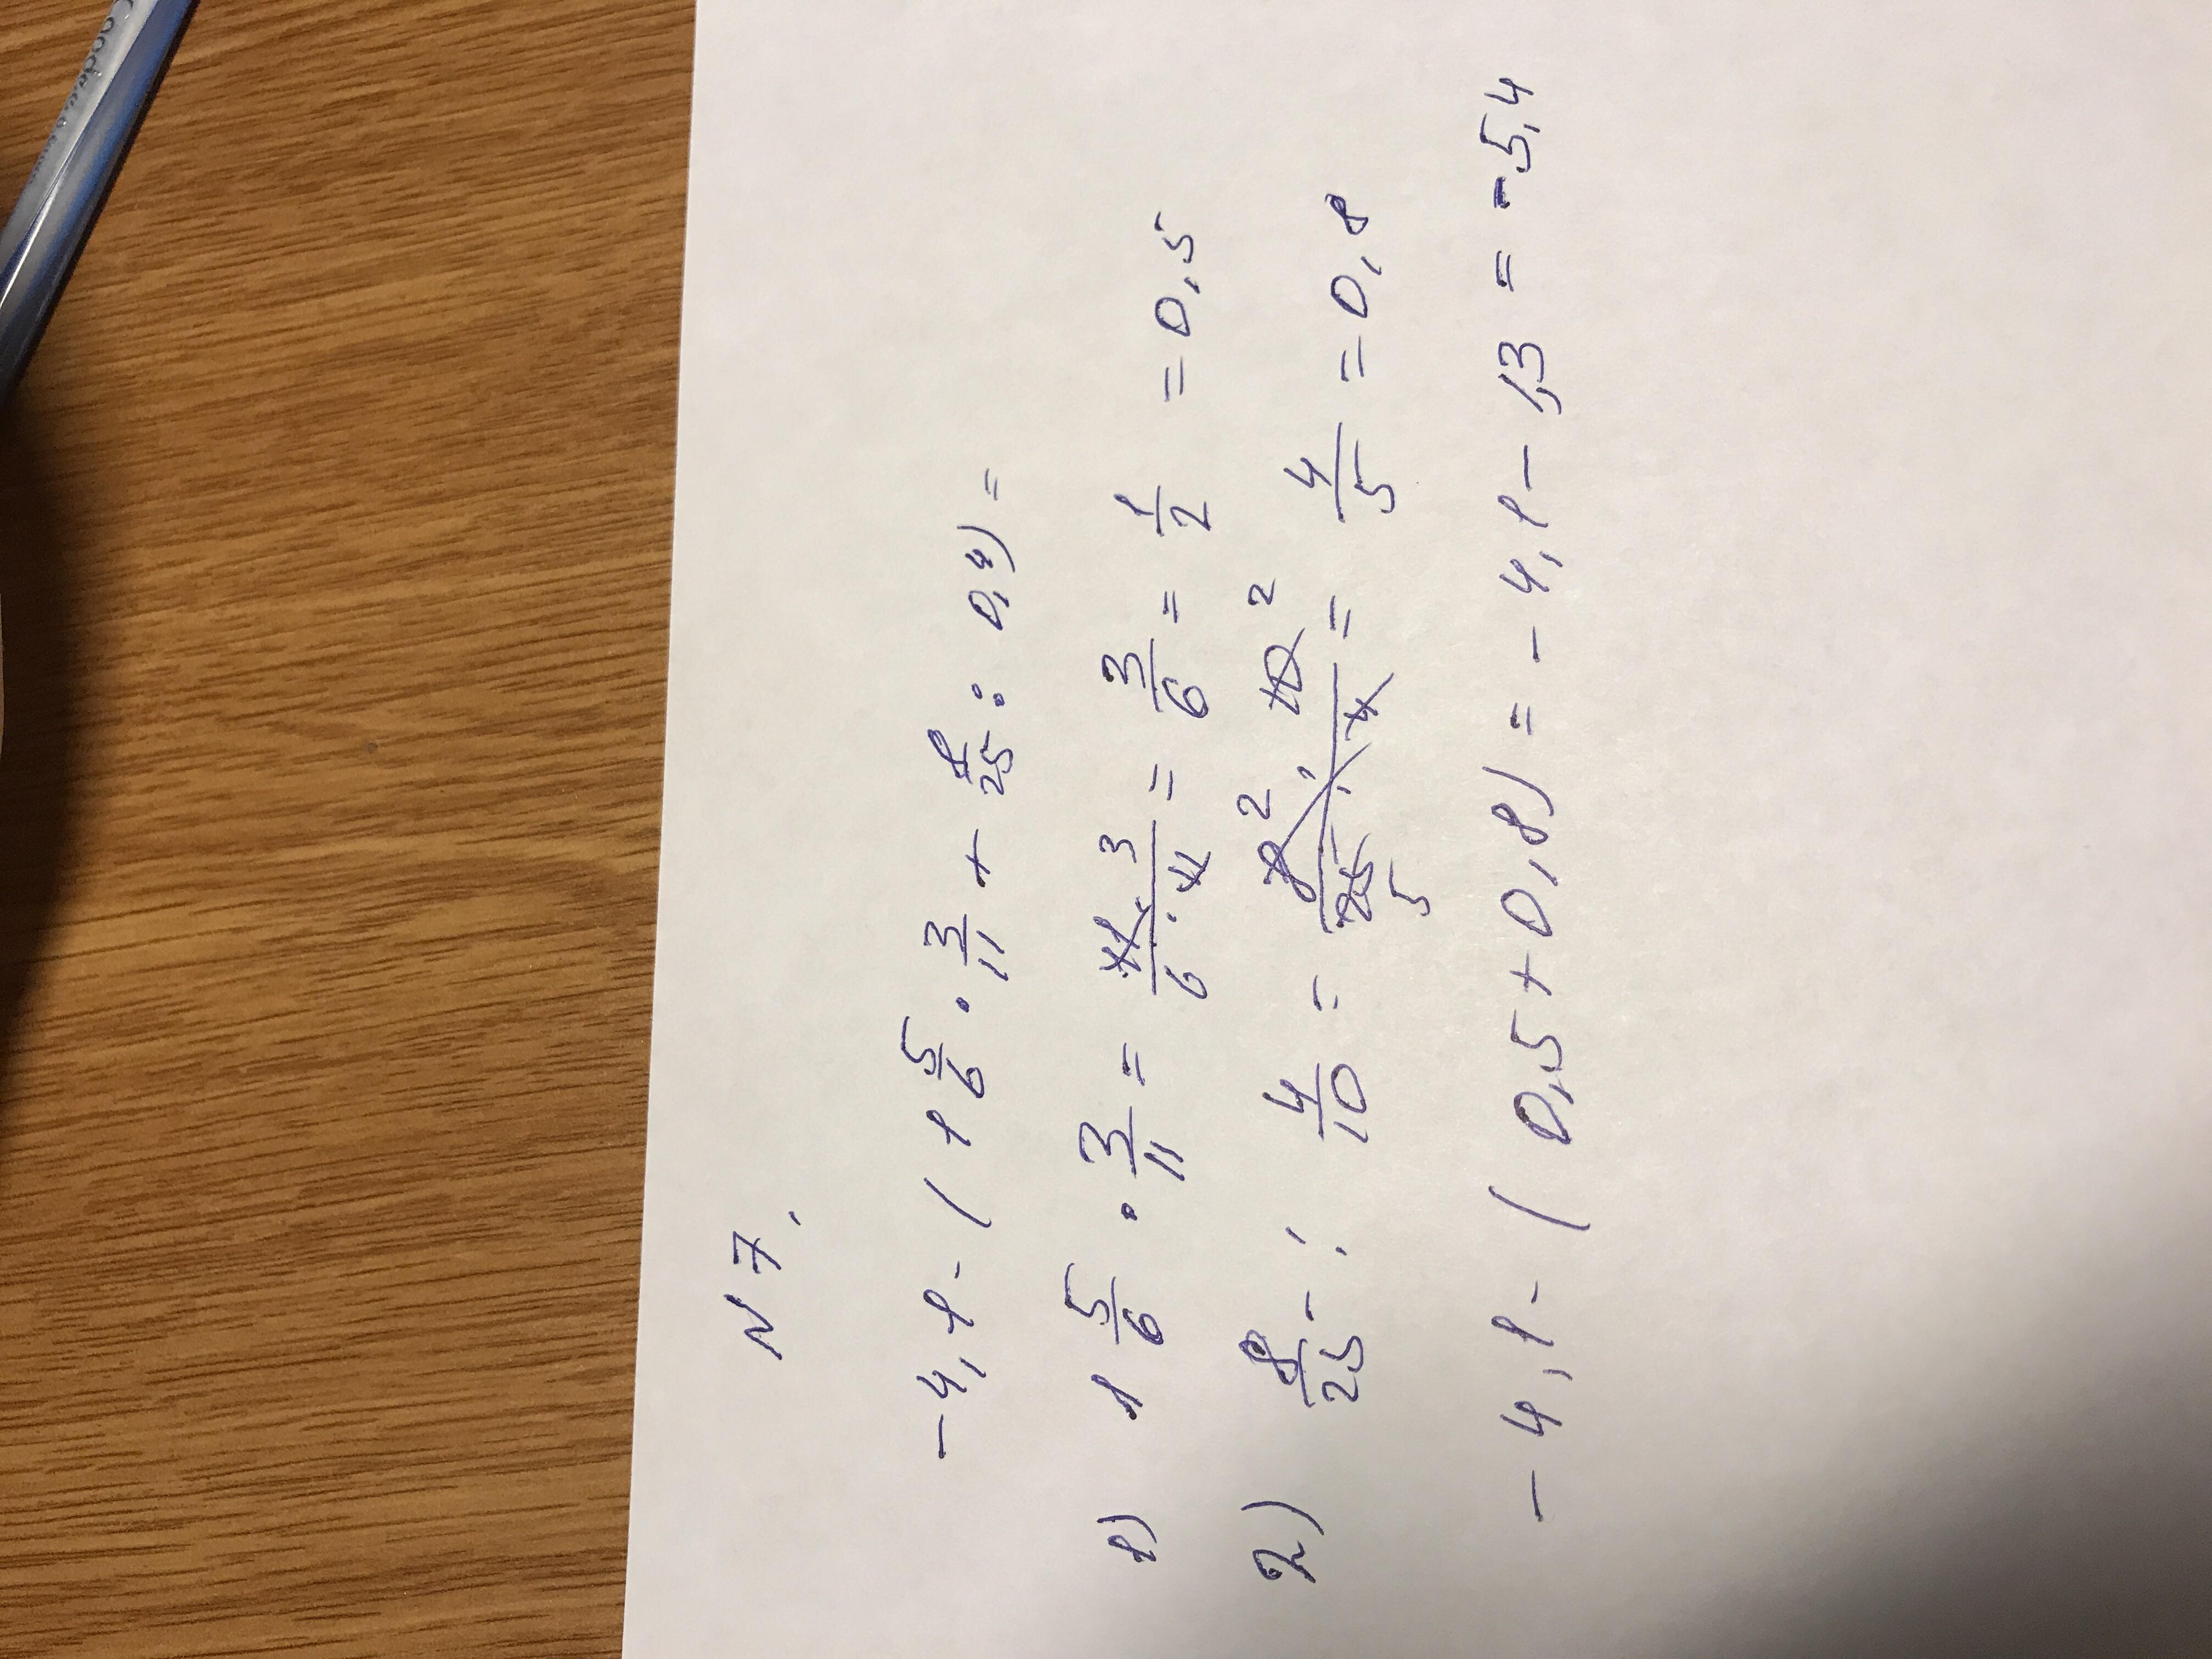 N 7.
-4,1 - (1 5/6 · 3/11 + 8/25 : 0,4) =
1) 1 5/6 · 3/11 = 11 · 3 / 6 · 11 = 3/6 = 1/2 = 0,5
2) 8/25 : 4/10 = 8 2 · 10 2 / 25 5 · 4 = 4/5 = 0,8
-4,1 - (0,5 + 0,8) = -4,1 - 1,3 = -5,4